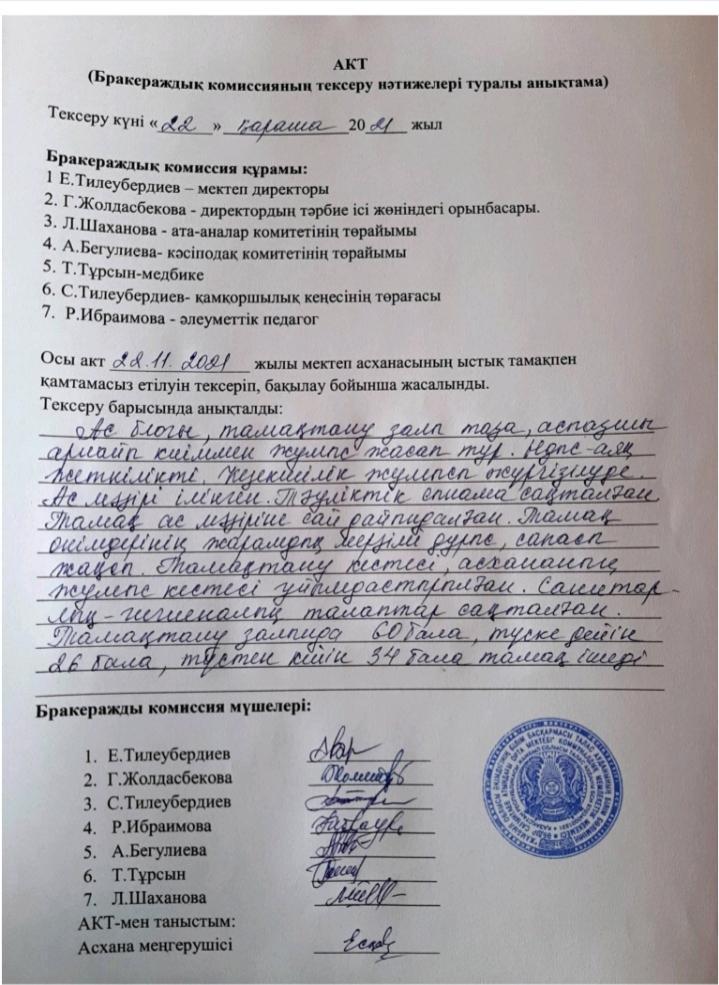 АКТ
(Бракераждық комиссияның тексеру нәтижелері туралы анықтама)
Тексеру күні «22» қараша 2021 жыл
Бракераждық комиссия құрамы:
1 Е.Тилеубердиев – мектеп директоры
2. Г.Жолдасбекова - директордың тәрбие ісі жөніндегі орынбасары.
3. Л.Шаханова - ата-аналар комитетінің төрайымы
4. А.Бегулиева- кәсіподақ комитетінің төрайымы
5. Т.Тұрсын-медбике
6. С.Тилеубердиев- қамқоршылық кеңесінің төрағасы
7. Р.Ибраимова - әлеуметтік педагог
Осы акт 22.11.2021 жылы мектеп асханасының ыстық тамақпен
қамтамасыз етілуін тексеріп, бақылау бойынша жасалынды.
Тексеру барысында анықталды:
Ас блогы, тамақтану залы таза, аспазшы
арнайы киіммен жұмыс жасап тұр. Ыдыс-аяқ
жеткілікті. Кезекшілік жұмысы жүргізілуде.
Ас мәзірі ілінген. Тәуліктік сынама сақталған
Тамақ ас мәзіріне сай дайындалған. Тамақ
өнімдерінің жарамдық мерзімі дұрыс, сапасы
жақсы. Тамақтану кестесі, асхананың
жұмыс кестесі ұйымдастырылған. Санитар-
лық-гигиеналық талаптар сақталған.
Тамақтану залында 60 бала, түске дейін
26 бала, түстен кейін 34 бала тамақ ішеді
Бракеражды комиссия мүшелері:
1. Е.Тилеубердиев
2. Г.Жолдасбекова
3. С.Тилеубердиев
4. Р.Ибраимова
5. А.Бегулиева
6. Т.Тұрсын
7. Л.Шаханова
АКТ-мен таныстым:
Асхана меңгерушісі